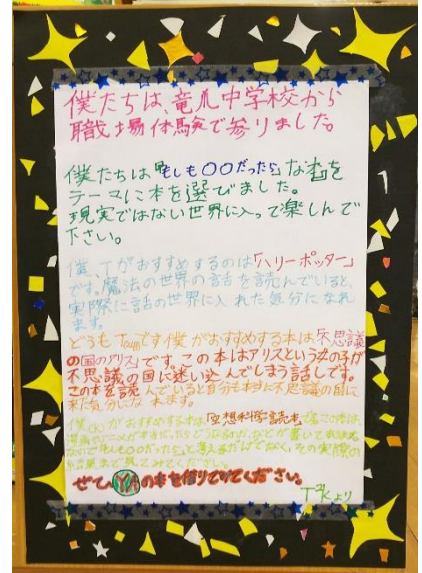 僕たちは、竜爪中学校から
職場体験で参りました。
僕たちは『もしも〇〇だったら』な本を
テーマに本を選びました。
現実ではない世界に入って楽しんで
下さい。
僕、Tがおすすめするのは「ハリーポッター」
です。魔法の世界の話を読んでいると、
実際に話の世界に入れた気分になれ
ます。
どうも です僕がおすすめする本は「不思議
の国のアリス」です。この本はアリスという女の子が
不思議の国に迷い込んでしまう話しです。
この本を読んでいると自分も本当に不思議の国に
来た気分になれます。
僕(K)がおすすめする本は「空想科学読本」です。この本は
漫画やアニメが本当だったらどうなるか
「もしも〇〇だったら」 その実際の
結果まで見てみてください。
ぜひYAの本を借りてみてください。
T²Kより